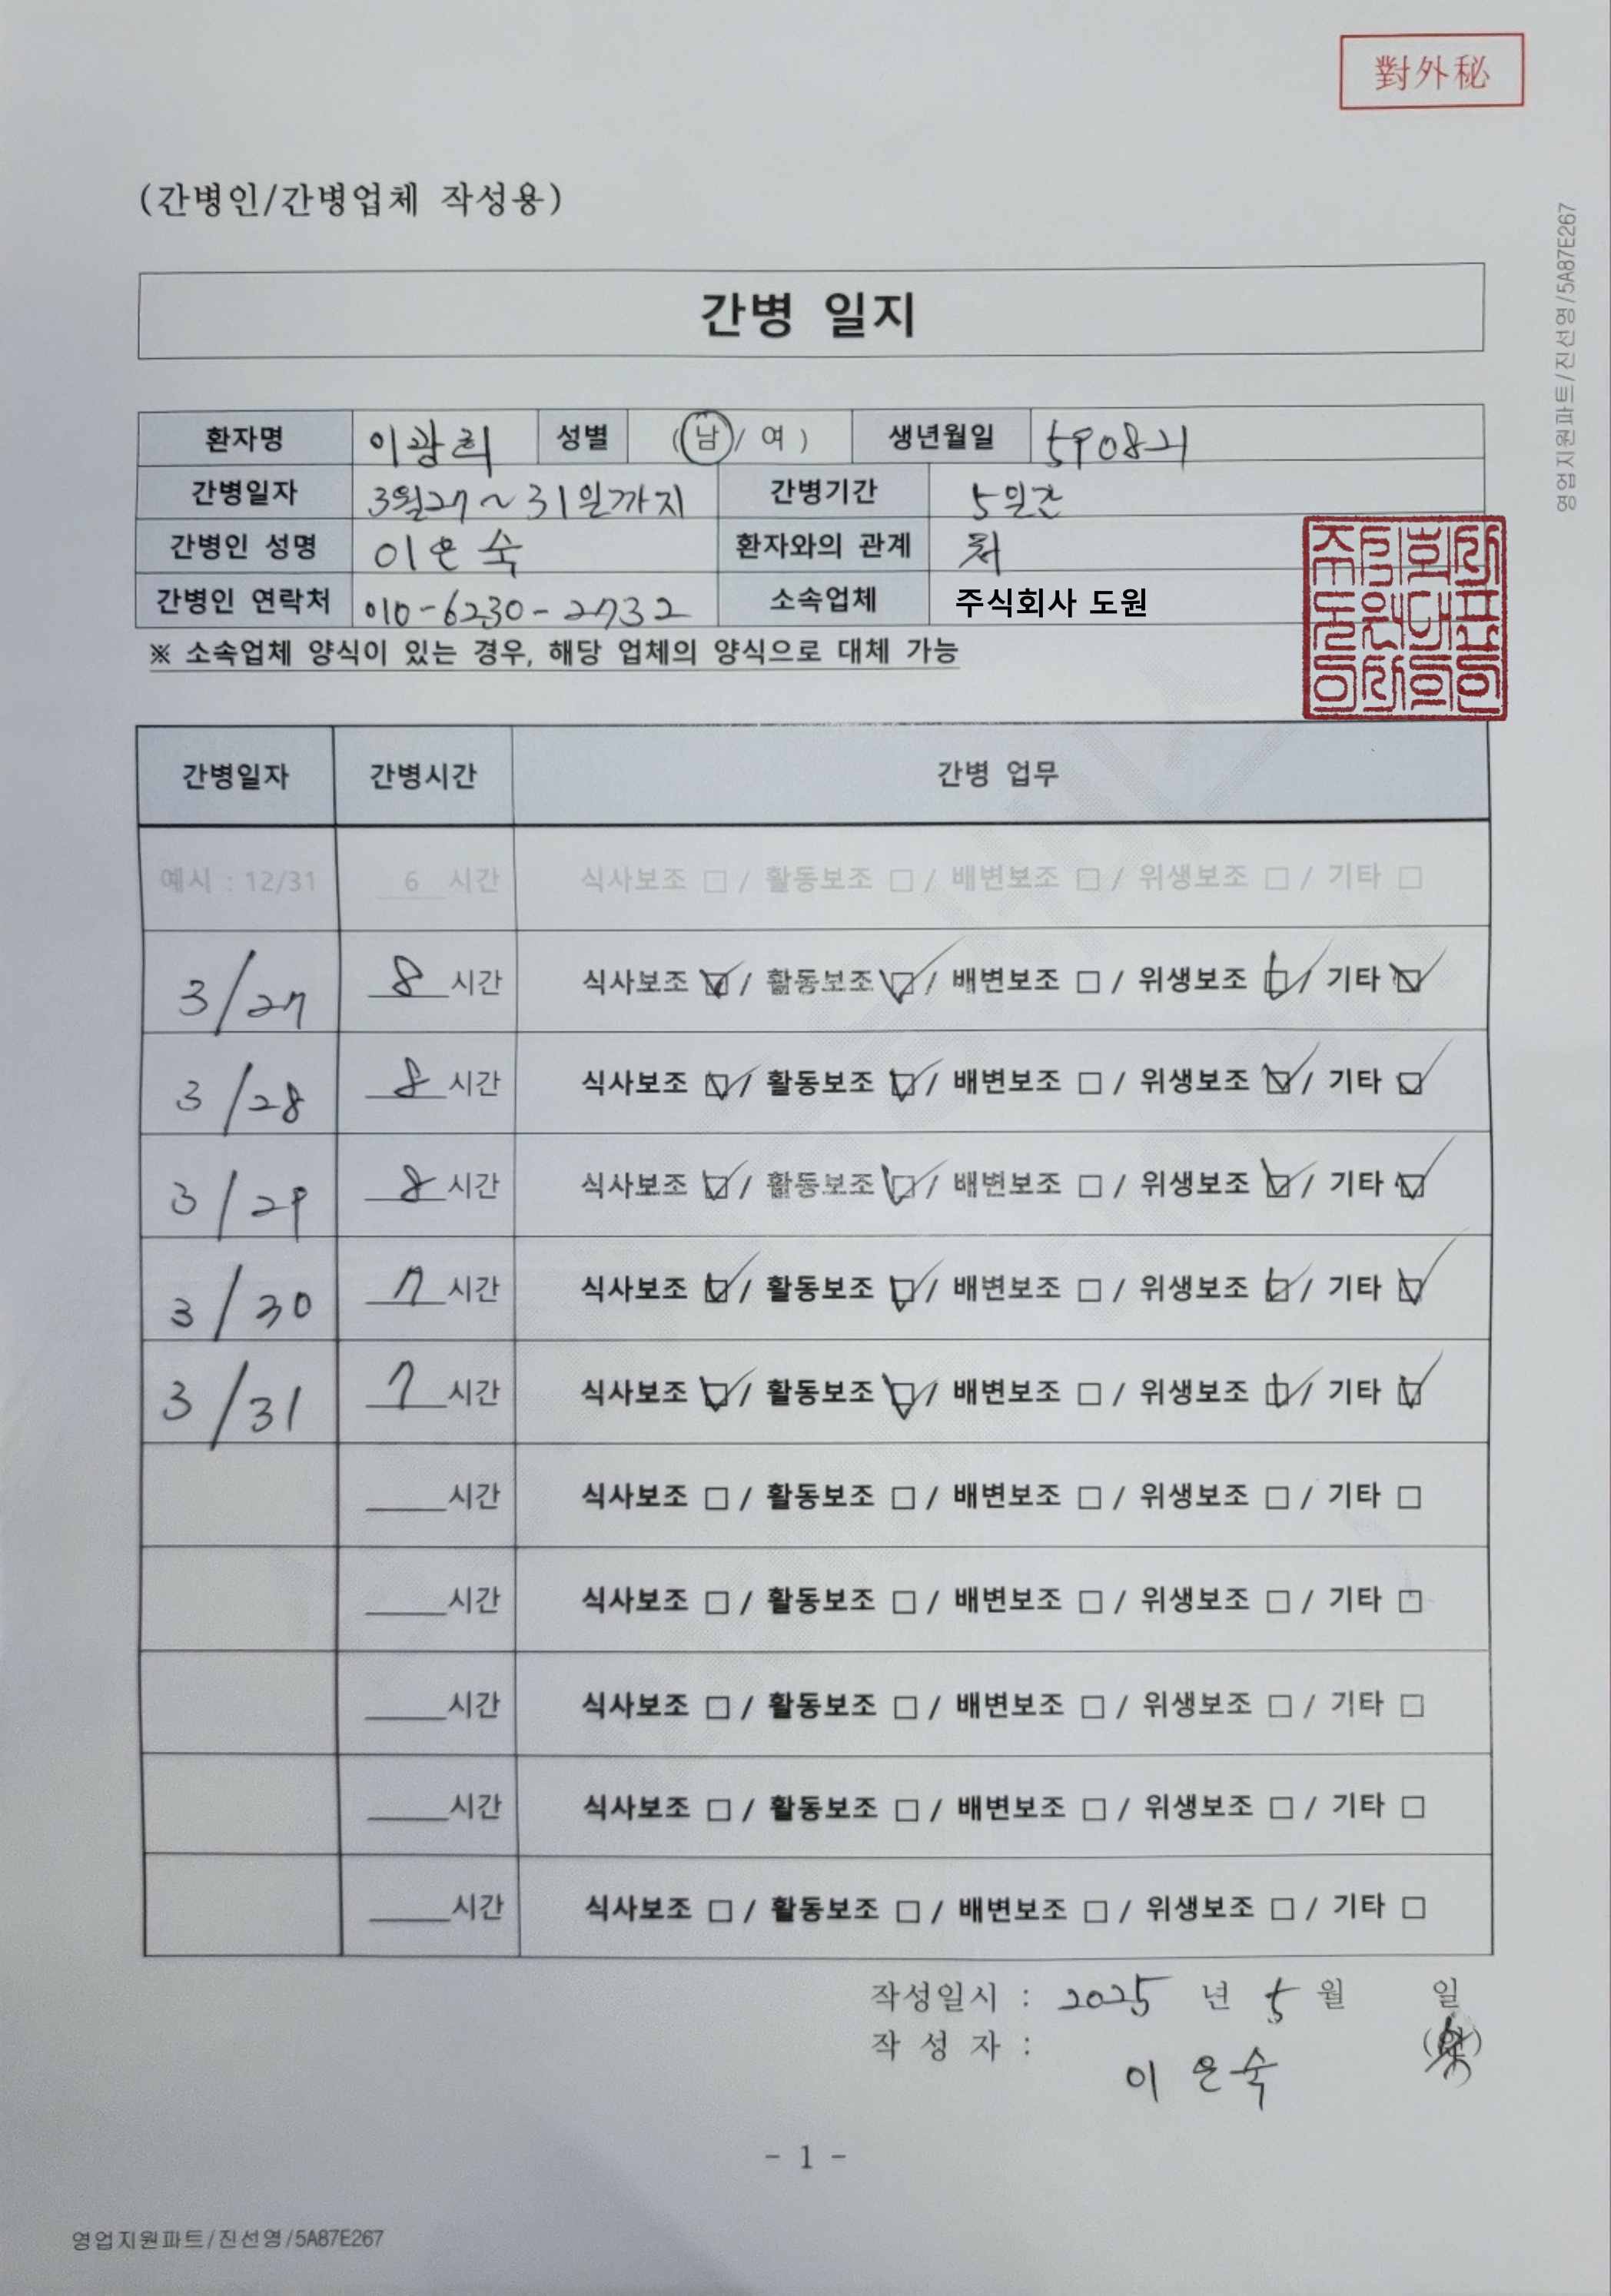 對外秘
(간병인/간병업체 작성용)
영업지원파트/진선영/5A87E267
간병 일지
환자명 이광희 성별 (남/ 여 ) 생년월일 590821
간병일자 3월27~31일까지 간병기간 5일간
간병인 성명 이은숙 환자와의 관계 처
간병인 연락처 010-6230-2732 소속업체 주식회사 도원
※ 소속업체 양식이 있는 경우, 해당 업체의 양식으로 대체 가능
간병일자 간병시간 간병 업무
예시 : 12/31 6 시간 식사보조 □ / 활동보조 □ / 배변보조 □ / 위생보조 □ / 기타 □
3/27 8 시간 식사보조 ☑ / 활동보조 ☑ / 배변보조 □ / 위생보조 ☑ / 기타 ☑
3/28 8 시간 식사보조 ☑ / 활동보조 ☑ / 배변보조 □ / 위생보조 ☑ / 기타 ☑
3/29 8 시간 식사보조 ☑ / 활동보조 ☑ / 배변보조 □ / 위생보조 ☑ / 기타 ☑
3/30 7 시간 식사보조 ☑ / 활동보조 ☑ / 배변보조 □ / 위생보조 ☑ / 기타 ☑
3/31 7 시간 식사보조 ☑ / 활동보조 ☑ / 배변보조 □ / 위생보조 ☑ / 기타 ☑
시간 식사보조 □ / 활동보조 □ / 배변보조 □ / 위생보조 □ / 기타 □
시간 식사보조 □ / 활동보조 □ / 배변보조 □ / 위생보조 □ / 기타 □
시간 식사보조 □ / 활동보조 □ / 배변보조 □ / 위생보조 □ / 기타 □
시간 식사보조 □ / 활동보조 □ / 배변보조 □ / 위생보조 □ / 기타 □
시간 식사보조 □ / 활동보조 □ / 배변보조 □ / 위생보조 □ / 기타 □
작성일시 : 2025 년 5 월 일
작 성 자 :
이은숙
- 1 -
영업지원파트/진선영/5A87E267